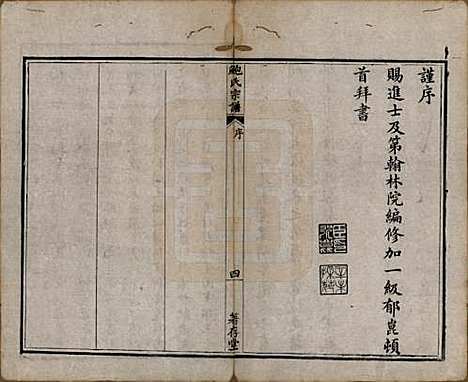 謹序
賜進士及第翰林院編修加一級郁崑頓
首拜書
鮑氏宗譜
序
四
著存堂